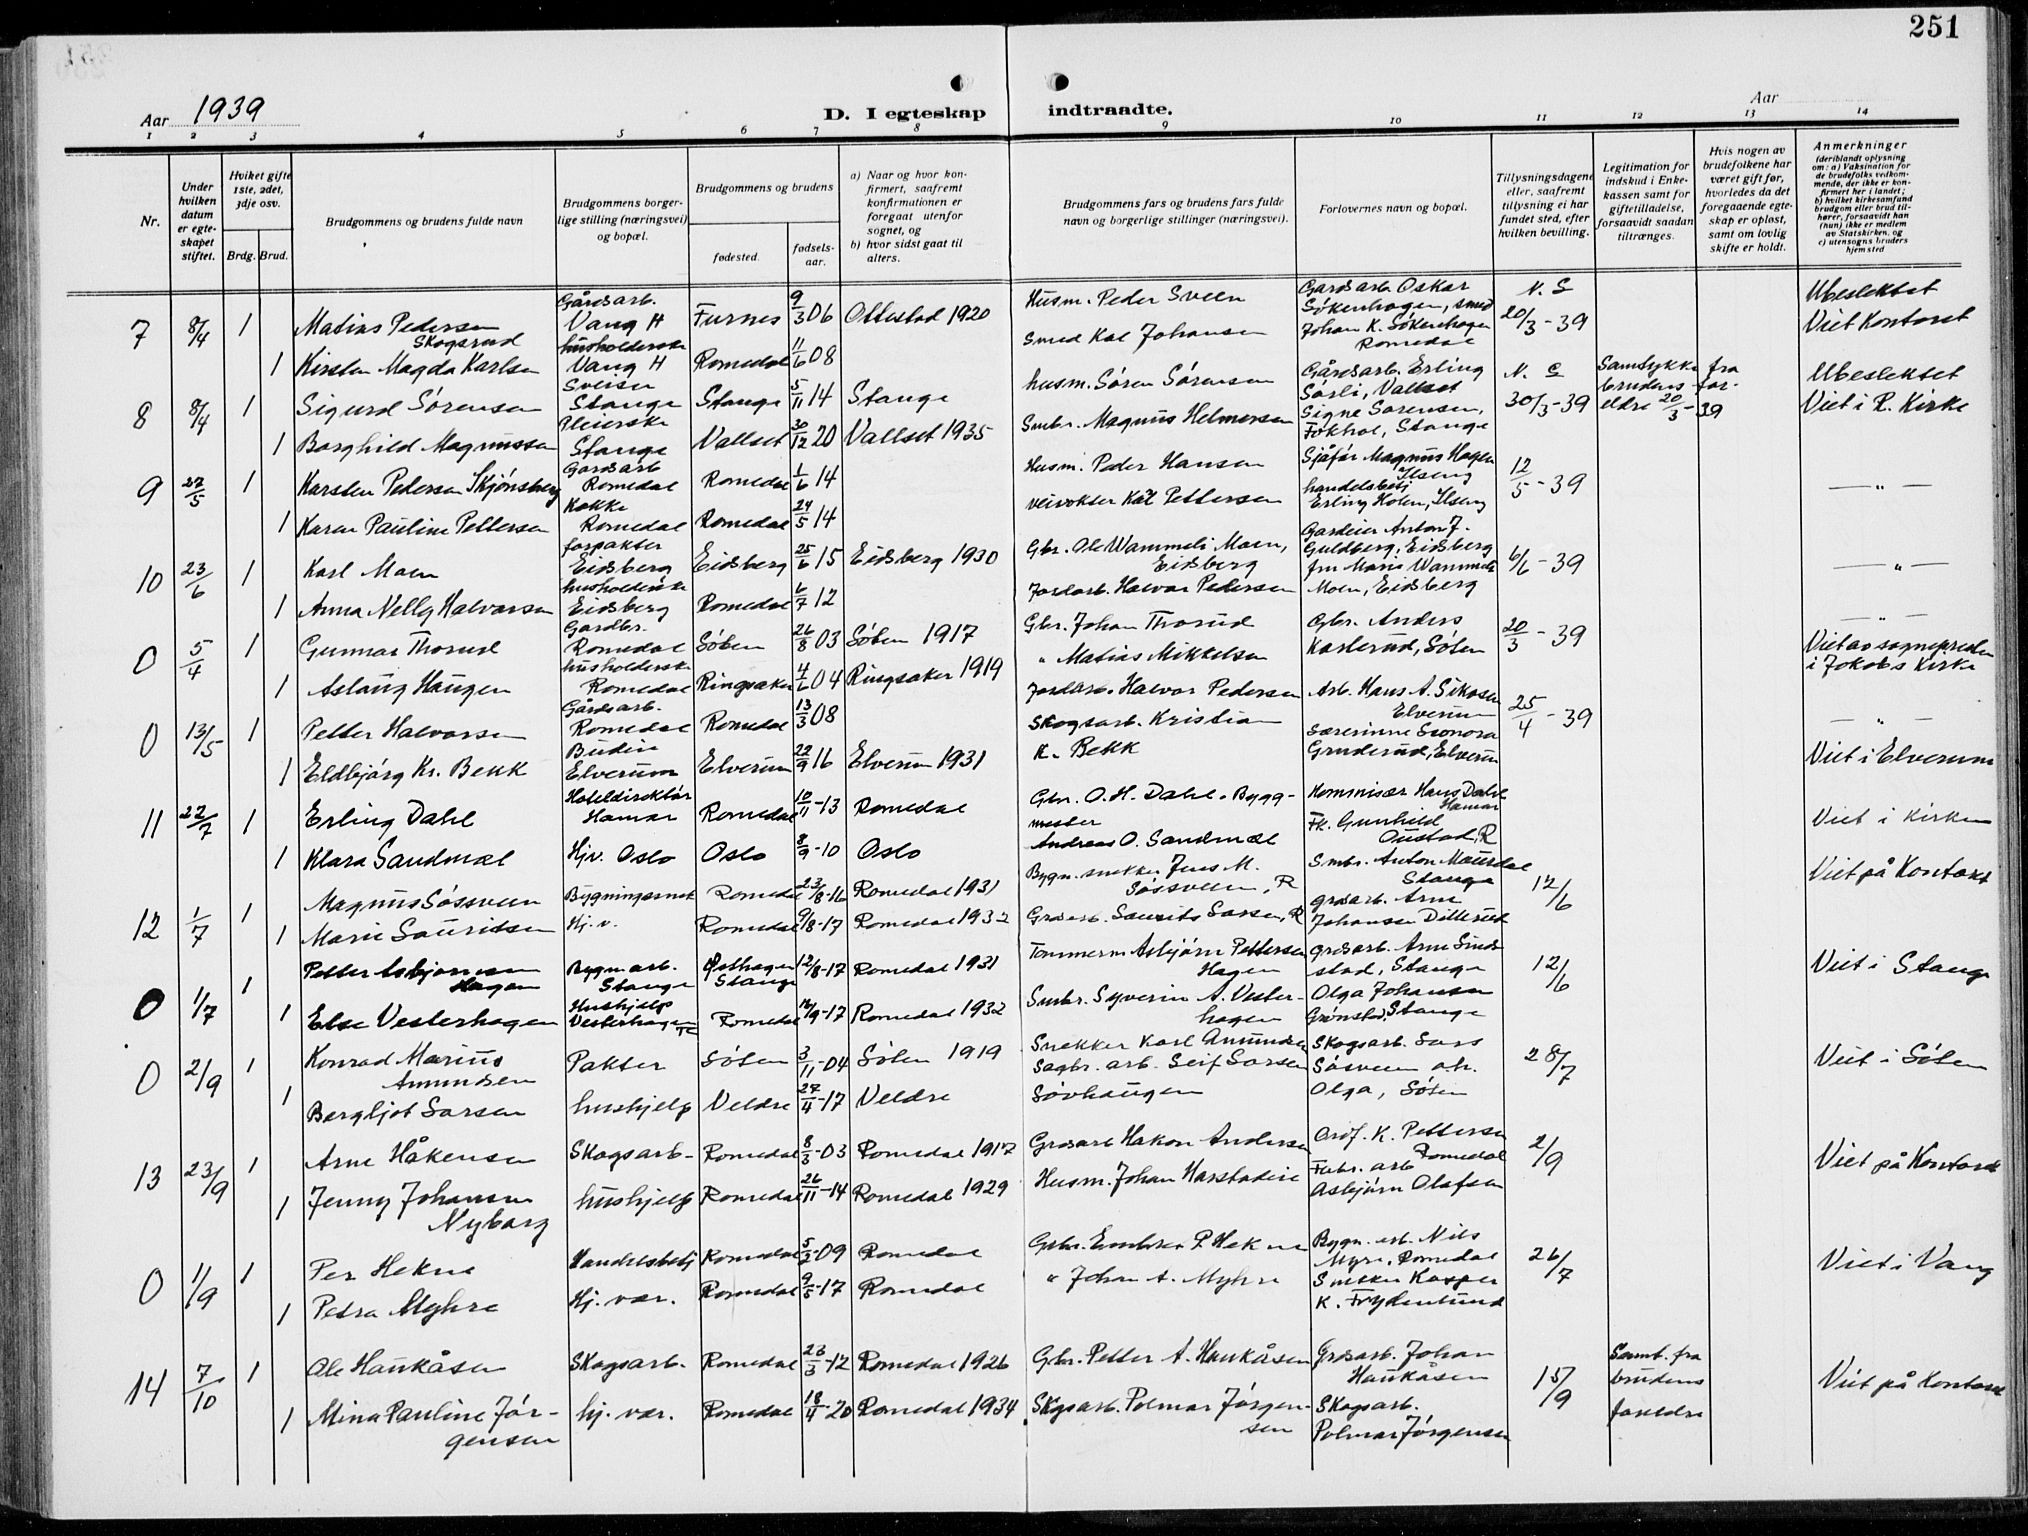 251
Aar 1939
D. I egteskap indtraadte.
Aar
1 2 3 4 5 6 7 8 9 10 11 12 13 14
Nr.
Under hvilken datum er egteskapet stiftet.
Hvilket gifte 1ste, 2det, 3dje osv.
Brdg. Brud.
Brudgommens og brudens fulde navn
Brudgommens borgerlige stilling (næringsvei) og bopæl.
Brudgommens og brudens
fødested.
fødselsaar.
a) Naar og hvor konfirmert, saafremt konfirmationen er foregaat utenfor sognet, og
b) hvor sidst gaat til alters.
Brudgommens fars og brudens fars fulde navn og borgerlige stillinger (næringsvei).
Forlovernes navn og bopæl.
Tillysningsdagene eller, saafremt tillysning ei har fundet sted, efter hvilken bevilling.
Legitimation for indskud i Enkekassen samt for giftetilladelse, forsaavidt saadan tiltrænges.
Hvis nogen av brudefolkene har været gift før, hvorledes da det foregaaende egteskap er opløst, samt om lovlig skifte er holdt.
Anmerkninger
(deriblandt oplysning om: a) Vaksination for de brudefolks vedkommende, der ikke er konfirmert her i landet; b) hvilket kirkesamfund brudgom eller brud tilhører, forsaavidt han (hun) ikke er medlem av Statskirken, og c) utensogns bruders hjemsted
7 8/4 1 Matias Pedersen Skogsrud Gårdsarb. Vang H Furnes 9/3 06 Ottestad 1920 Husm. Peder Sveen Gardsarb. Oskar Søkenhagen, smed N. S 20/3-39 Ubeslektet
1 Kirsten Magda Karlsen husholderske Vang H Romedal 11/6 08 Smed Kal Johansen Johan K. Søkenhagen Romedal Viet Kontoret
8 8/4 1 Sigurd Sørensen Sveiser Stange Stange 5/11 14 Stange husm. Søren Sørensen Gårdsarb. Erling Sørli, Vallset 30/3-39 Samtykke fra brudens foreldre 20/3-39 Ubeslektet
1 Borghild Magnussen Pleierske Stange Vallset 30/12 20 Vallset 1935 Smbr. Magnus Helmersen Signe Sørensen, Fokhol, Stange Viet i R. Kirke
9 27/5 1 Karsten Pedersen Skjønsberg Gardsarb Romedal Romedal 1/6 14 Husm. Peder Hansen Sjåfør Magnus Hagen Ilseng 12/5-39 — " —
1 Karen Pauline Pettersen Kokke Romedal Romedal 24/5 14 veivokter Kal Pettersen handelsbetj Erling Holen, Ilseng
10 23/6 1 Karl Moen forpakter Eidsberg Eidsberg 25/6 15 Eidsberg 1930 Gbr. Ole Wammeli Moen, Eidsberg Gardeier Anton J. Guldberg, Eidsberg 6/6-39 — " —
1 Anna Nelly Halvorsen husholderske Eidsberg Romedal 6/7 12 Jordarb. Halvor Pedersen fru Maria Wammeli Moen, Eidsberg
0 5/4 1 Gunnar Thorud Gardbr. Romedal Løten 26/8 03 Løten 1917 Gbr. Johan Thorud Gbr. Anders Karlsrud, Løten 20/3-39 — " —
1 Aslaug Haugen husholderske Romedal Ringsaker 4/6 04 Ringsaker 1919 " Matias Mikkelsen Viet av sognepresten i Jakobs Kirke
0 13/5 1 Petter Halvorsen Gårdsarb. Romedal Romedal 13/3 08 Jordarb. Halvor Pedersen Arb. Hans A. Elverum 25/4-39 — " —
1 Eldbjørg Kr. Bekk Budeie Elverum Elverum 22/9 16 Elverum 1931 Skogsarb. Kristian K. Bekk Gruderud, Elverum Viet i Elverum
11 22/7 1 Erling Dahl Hoteldirektør Hamar Romedal 10/11-13 Romedal Gbr. O. H. Dahl. Byggmester Kommisær Hans Dahl Hamar Viet i kirken
1 Klara Sandmæl Hjv. Oslo Oslo 8/9-10 Oslo Andreas O. Sandmæl Fk. Gunhild R
12 1/7 1 Magnus Løssveen Bygningssnek Romedal 23/8-16 Romedal 1931 Bygn. snekker Jens M. Løssveen, R Smbr. Anton Maursdal Stange 12/6 Viet på Kontoret
1 Marie Lauritsen Hj.v. Romedal 9/8-17 Romedal 1932 Grdsarb. Laurits Larsen, R grdsarb. Arne Johansen Dillerud
0 1/7 1 Petter Asbjørnsen Hagen Bygn.arb. Stange Østhagen Stange 12/8-17 Romedal 1931 Tømmerm Asbjørn Pettersen Hagen Grdsarb. Arne Lindstad, Stange 12/6 Viet i Stange
1 Else Vesterhagen Hushjelp Vesterhagen Romedal 16/9-17 Romedal 1932 Smbr. Syverin A. Vesterhagen Olga Johansen Grønstad, Stange
0 2/9 1 Konrad Marius Amundsen Pakter Løten 3/11-04 Løten 1919 Snekker Karl Amundsen Skogsarb. Lars Løsveen o.h. 28/7 Viet i Løten
1 Bergljot Larsen hushjelp Veldre 27/4-17 Veldre Sagbr. arb. Leif Larsen Løvhaugen Olga, Løten
13 23/9 1 Arne Håkensen Skogsarb- Romedal 8/3-03 Romedal 1917 Grdsarb Hakon Andersen K. Pettersen Romedal 2/9 Viet på Kontoret
1 Jenny Johansen Nyborg hushjelp Romedal 26/11-14 Romedal 1929 Husm. Johan Harstadeie Fabr. arb Asbjørn Olafsen
0 1/9 1 Per Hekne Handelsbetj Romedal 5/2-09 Romedal Gbr. Embret P. Hekne Bygn. arb. Nils Myre, Romedal 26/7 Viet i Vang
1 Petra Myhre Hj. vær. Romedal 9/5-17 Romedal " Johan A. Myhre Snekker Kasper K. Frydenlund
14 7/10 1 Ole Haukåsen Skogsarb. Romedal 23/3-12 Romedal 1926 Gbr. Petter A. Haukåsen Grdsarb. Johan Haukåsen 15/9 Samt. fra brudens foreldre Viet på Kontoret
1 Mina Pauline Jørgensen hj. vær. Romedal 18/4-20 Romedal 1934 Skgsarb. Polmar Jørgensen Skogsarb. Polmar Jørgensen